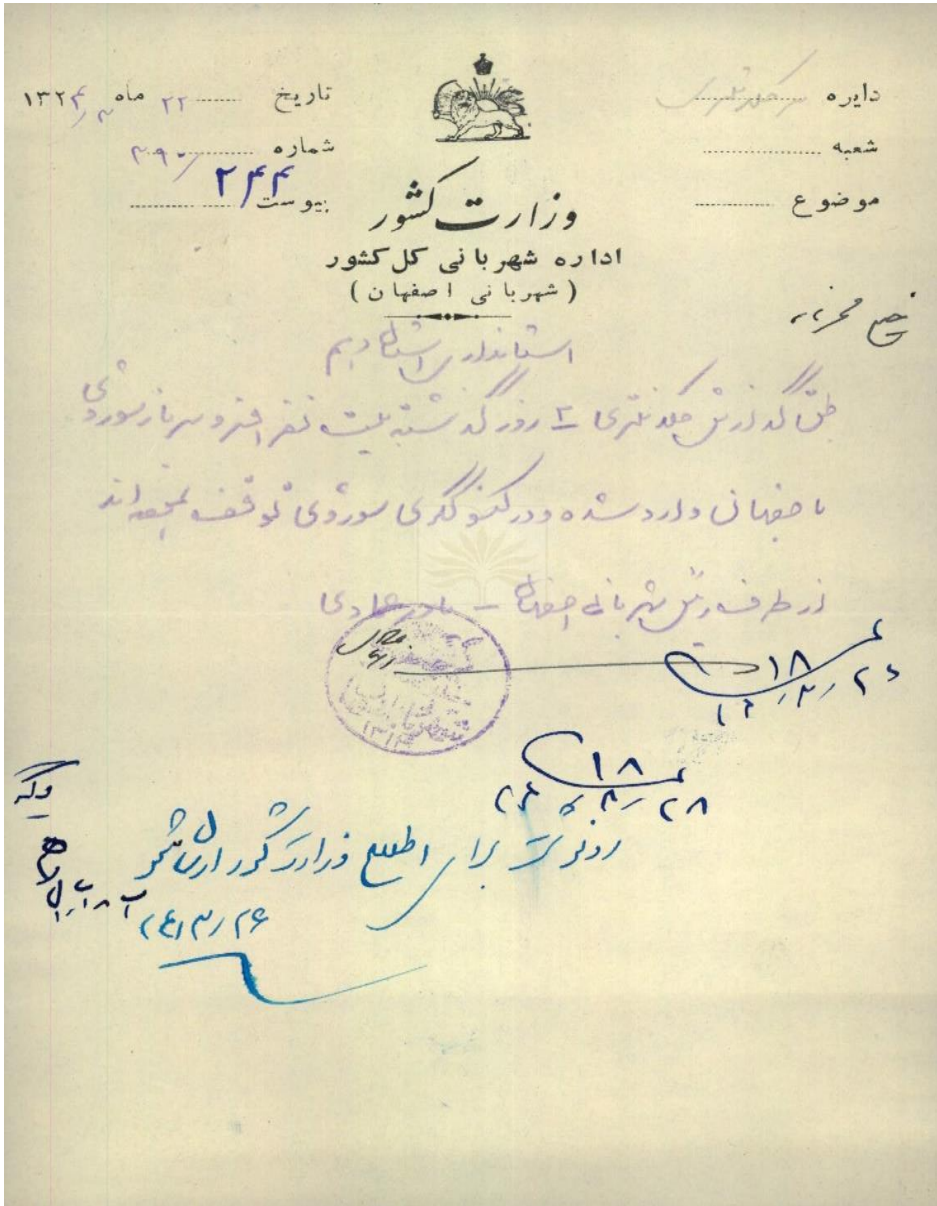 دایره سرکلانتری
شعبه
موضوع
تاریخ ۲۲ ماه ۳ ۱۳۲۴
شماره ۳۹۰
۲۴۴
پیوست
وزارت کشور
اداره شهربانی کل کشور
(شهربانی اصفهان)
خیلی محرمانه
استانداری استان دهم
طبق گزارش کلانتری ۲ روز گذشته بیست نفر افسر و سرباز شوروی
باصفهان وارد شده و در کنسولگری شوروی توقف نموده اند
از طرف رئیس شهربانی اصفهان
۱۸
۲۴/۳/۲۶
۱۸
۲۴/۳/۲۸
رونوشت برای اطلاع وزارت کشور ارسال شود
۲۴/۳/۲۶